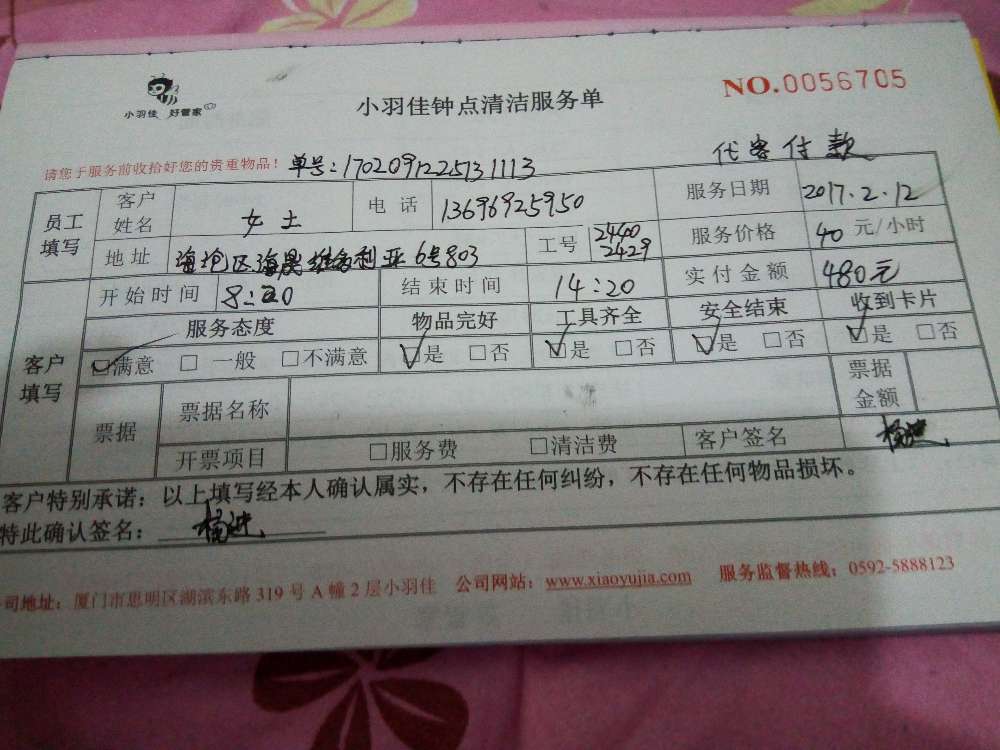 小羽佳 好管家
小羽佳钟点清洁服务单
NO.0056705
请您于服务前收拾好您的贵重物品！
单号：17020912225131113
代客付款
员工填写
客户姓名 女士 电话 13696925950 服务日期 2017.2.12
地址 海沧区海晟维多利亚6号803 工号 2440 2429 服务价格 40 元/小时
客户填写
开始时间 8:20 结束时间 14:20 实付金额 480元
服务态度 物品完好 工具齐全 安全结束 收到卡片
☑满意 □ 一般 □不满意 ☑是 □否 ☑是 □否 ☑是 □否 ☑是 □否
票据 票据名称 票据金额
开票项目 □服务费 □清洁费 客户签名
客户特别承诺：以上填写经本人确认属实，不存在任何纠纷，不存在任何物品损坏。
特此确认签名：
司地址：厦门市思明区湖滨东路 319 号 A 幢 2 层小羽佳 公司网站：www.xiaoyujia.com 服务监督热线：0592-5888123